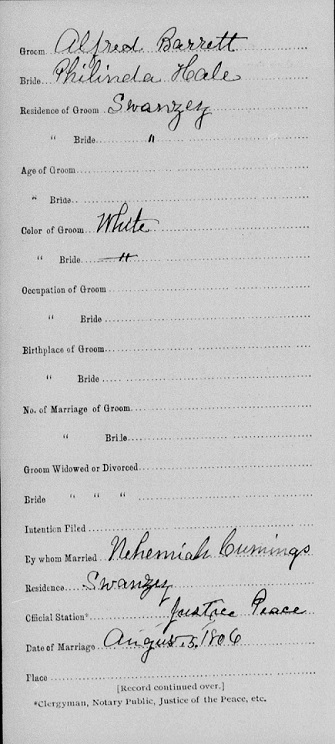 Groom Alfred Barrett
Bride Philinda Hale
Residence of Groom Swanzey
" Bride "
Age of Groom
" Bride
Color of Groom White
" Bride "
Occupation of Groom
" Bride
Birthplace of Groom
" Bride
No. of Marriage of Groom
" Bride
Groom Widowed or Divorced
Bride " " "
Intention Filed
By whom Married Nehemiah Cumings
Residence Swanzey
Official Station* Justice Peace
Date of Marriage 1806
Place
[Record continued over.]
*Clergyman, Notary Public, Justice of the Peace, etc.